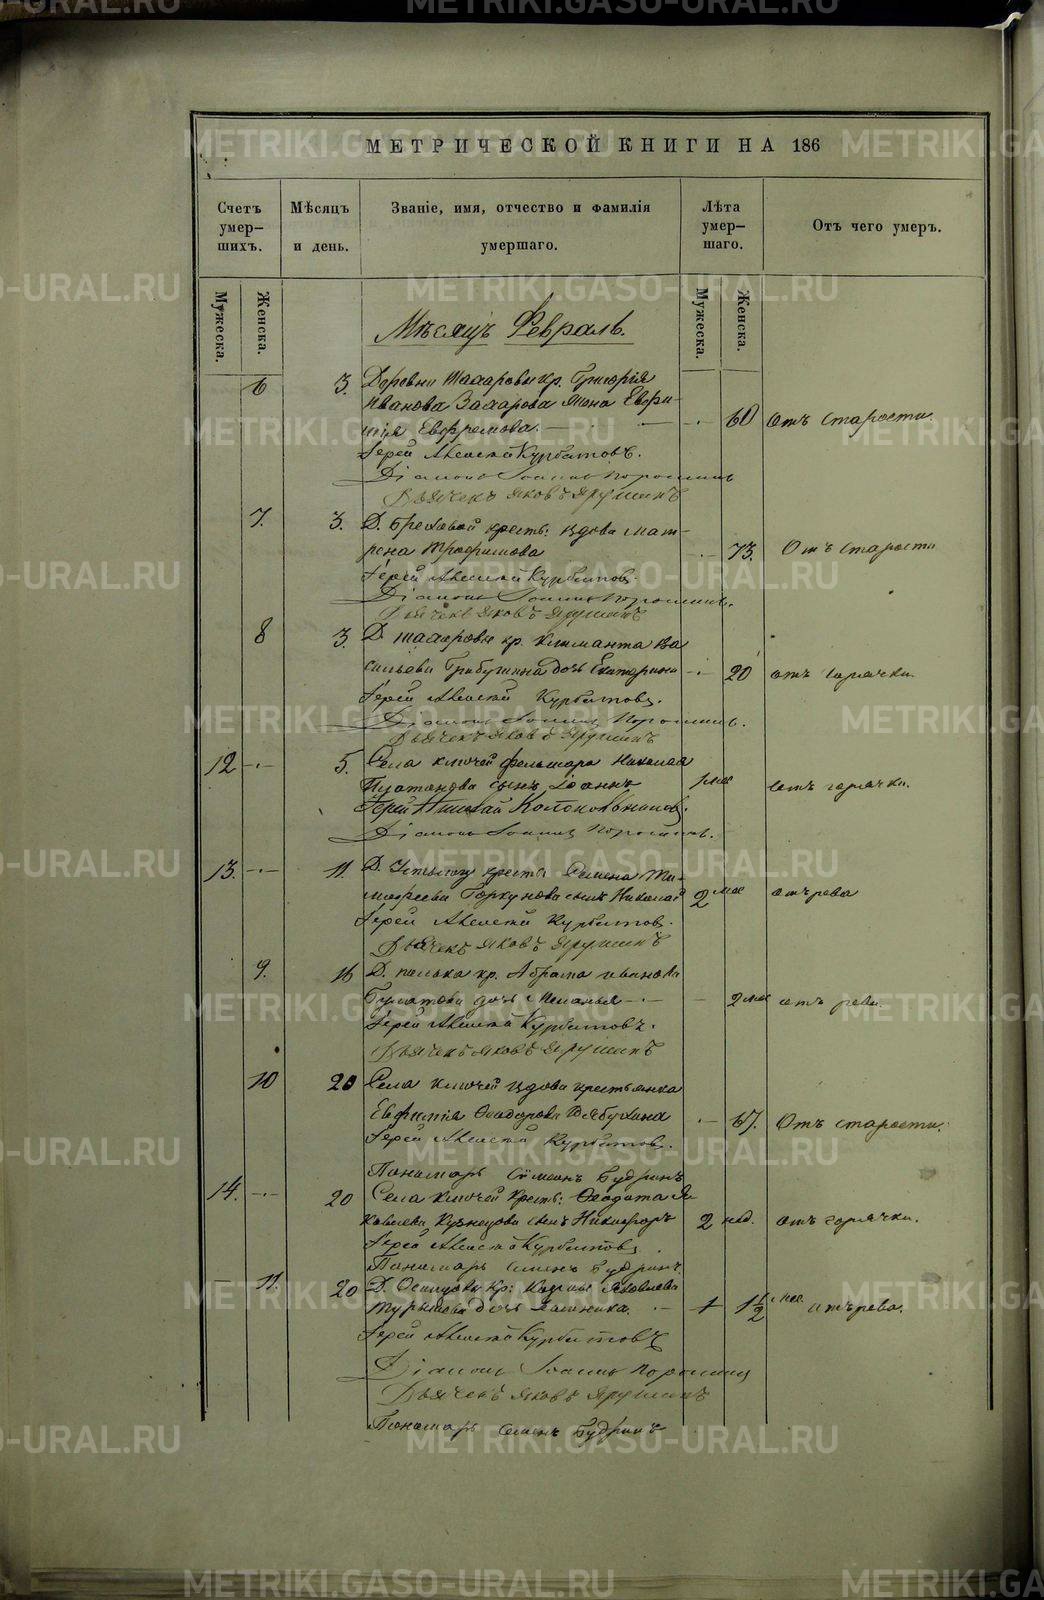 МЕТРИЧЕСКОЙ КНИГИ НА 186
Счетъ умер- шихъ.
Мѣсяцъ и день.
Званіе, имя, отчество и фамилія умершаго.
Лѣта умер- шаго.
Отъ чего умеръ.
Мужеска.
Женска.
Мужеска.
Женска.
Мѣсяцъ Февраль.
6 3. Деревни кр. Григорія
Иванова Захарова жена Евфи-
мія Ефремова. 60 отъ старости.
Іерей Алексѣй Курбатовъ.
Діаконъ Іоаннъ Порошинъ
Дьячекъ Яковъ Ярушинъ
7. 3. Д. Бреховой крест: вдова Мат-
рена Трофимова 73. Отъ старости
Іерей Алексѣй Курбатовъ.
Діаконъ Іоаннъ Порошинъ.
Дьячекъ Яковъ Ярушинъ
8 3. Д. кр. Климанта Ва
сильева дочь Екатерина 20 отъ горячки.
Іерей Алексѣй Курбатовъ.
Діаконъ Іоаннъ Порошинъ.
Дьячекъ Яковъ Ярушинъ
12 5. Села Ключей фельшара Николая
Платонова сынъ Іоаннъ 1 мѣс отъ горячки.
Іерей Николай Колокольниковъ.
Діаконъ Іоаннъ Порошинъ.
13. 11. Д. крест: Семена Ти-
мофеева Горкунова сынъ Николай 2 мѣс отъ рева
Іерей Алексѣй Курбатовъ.
Дьячекъ Яковъ Ярушинъ
9. 16 Д. кр. Абрама Иванова
дочь Меланья 2 мѣс отъ рева
Іерей Алексѣй Курбатовъ.
Дьячекъ Яковъ Ярушинъ
10 20 Села Ключей вдова крестьянка
Евфимія Феодорова 67. Отъ старости.
Іерей Алексѣй Курбатовъ.
Пономарь Симеонъ Будринъ
14. 20 Села Ключей крест: Феодота Я
ковлева Кузнецова сынъ Никифоръ 2 нед. отъ горячки.
Іерей Алексѣй Курбатовъ
Пономарь Семенъ Будринъ.
11. 20 Д. Осинцовы кр: Козмы Яковлева
дочь 1 1/2 мѣс. отъ рева.
Іерей Алексѣй Курбатовъ
Діаконъ Іоаннъ Порошинъ
Дьячекъ Яковъ Ярушинъ
Пономарь Семенъ Будринъ
METRIKI.GASO-URAL.RU